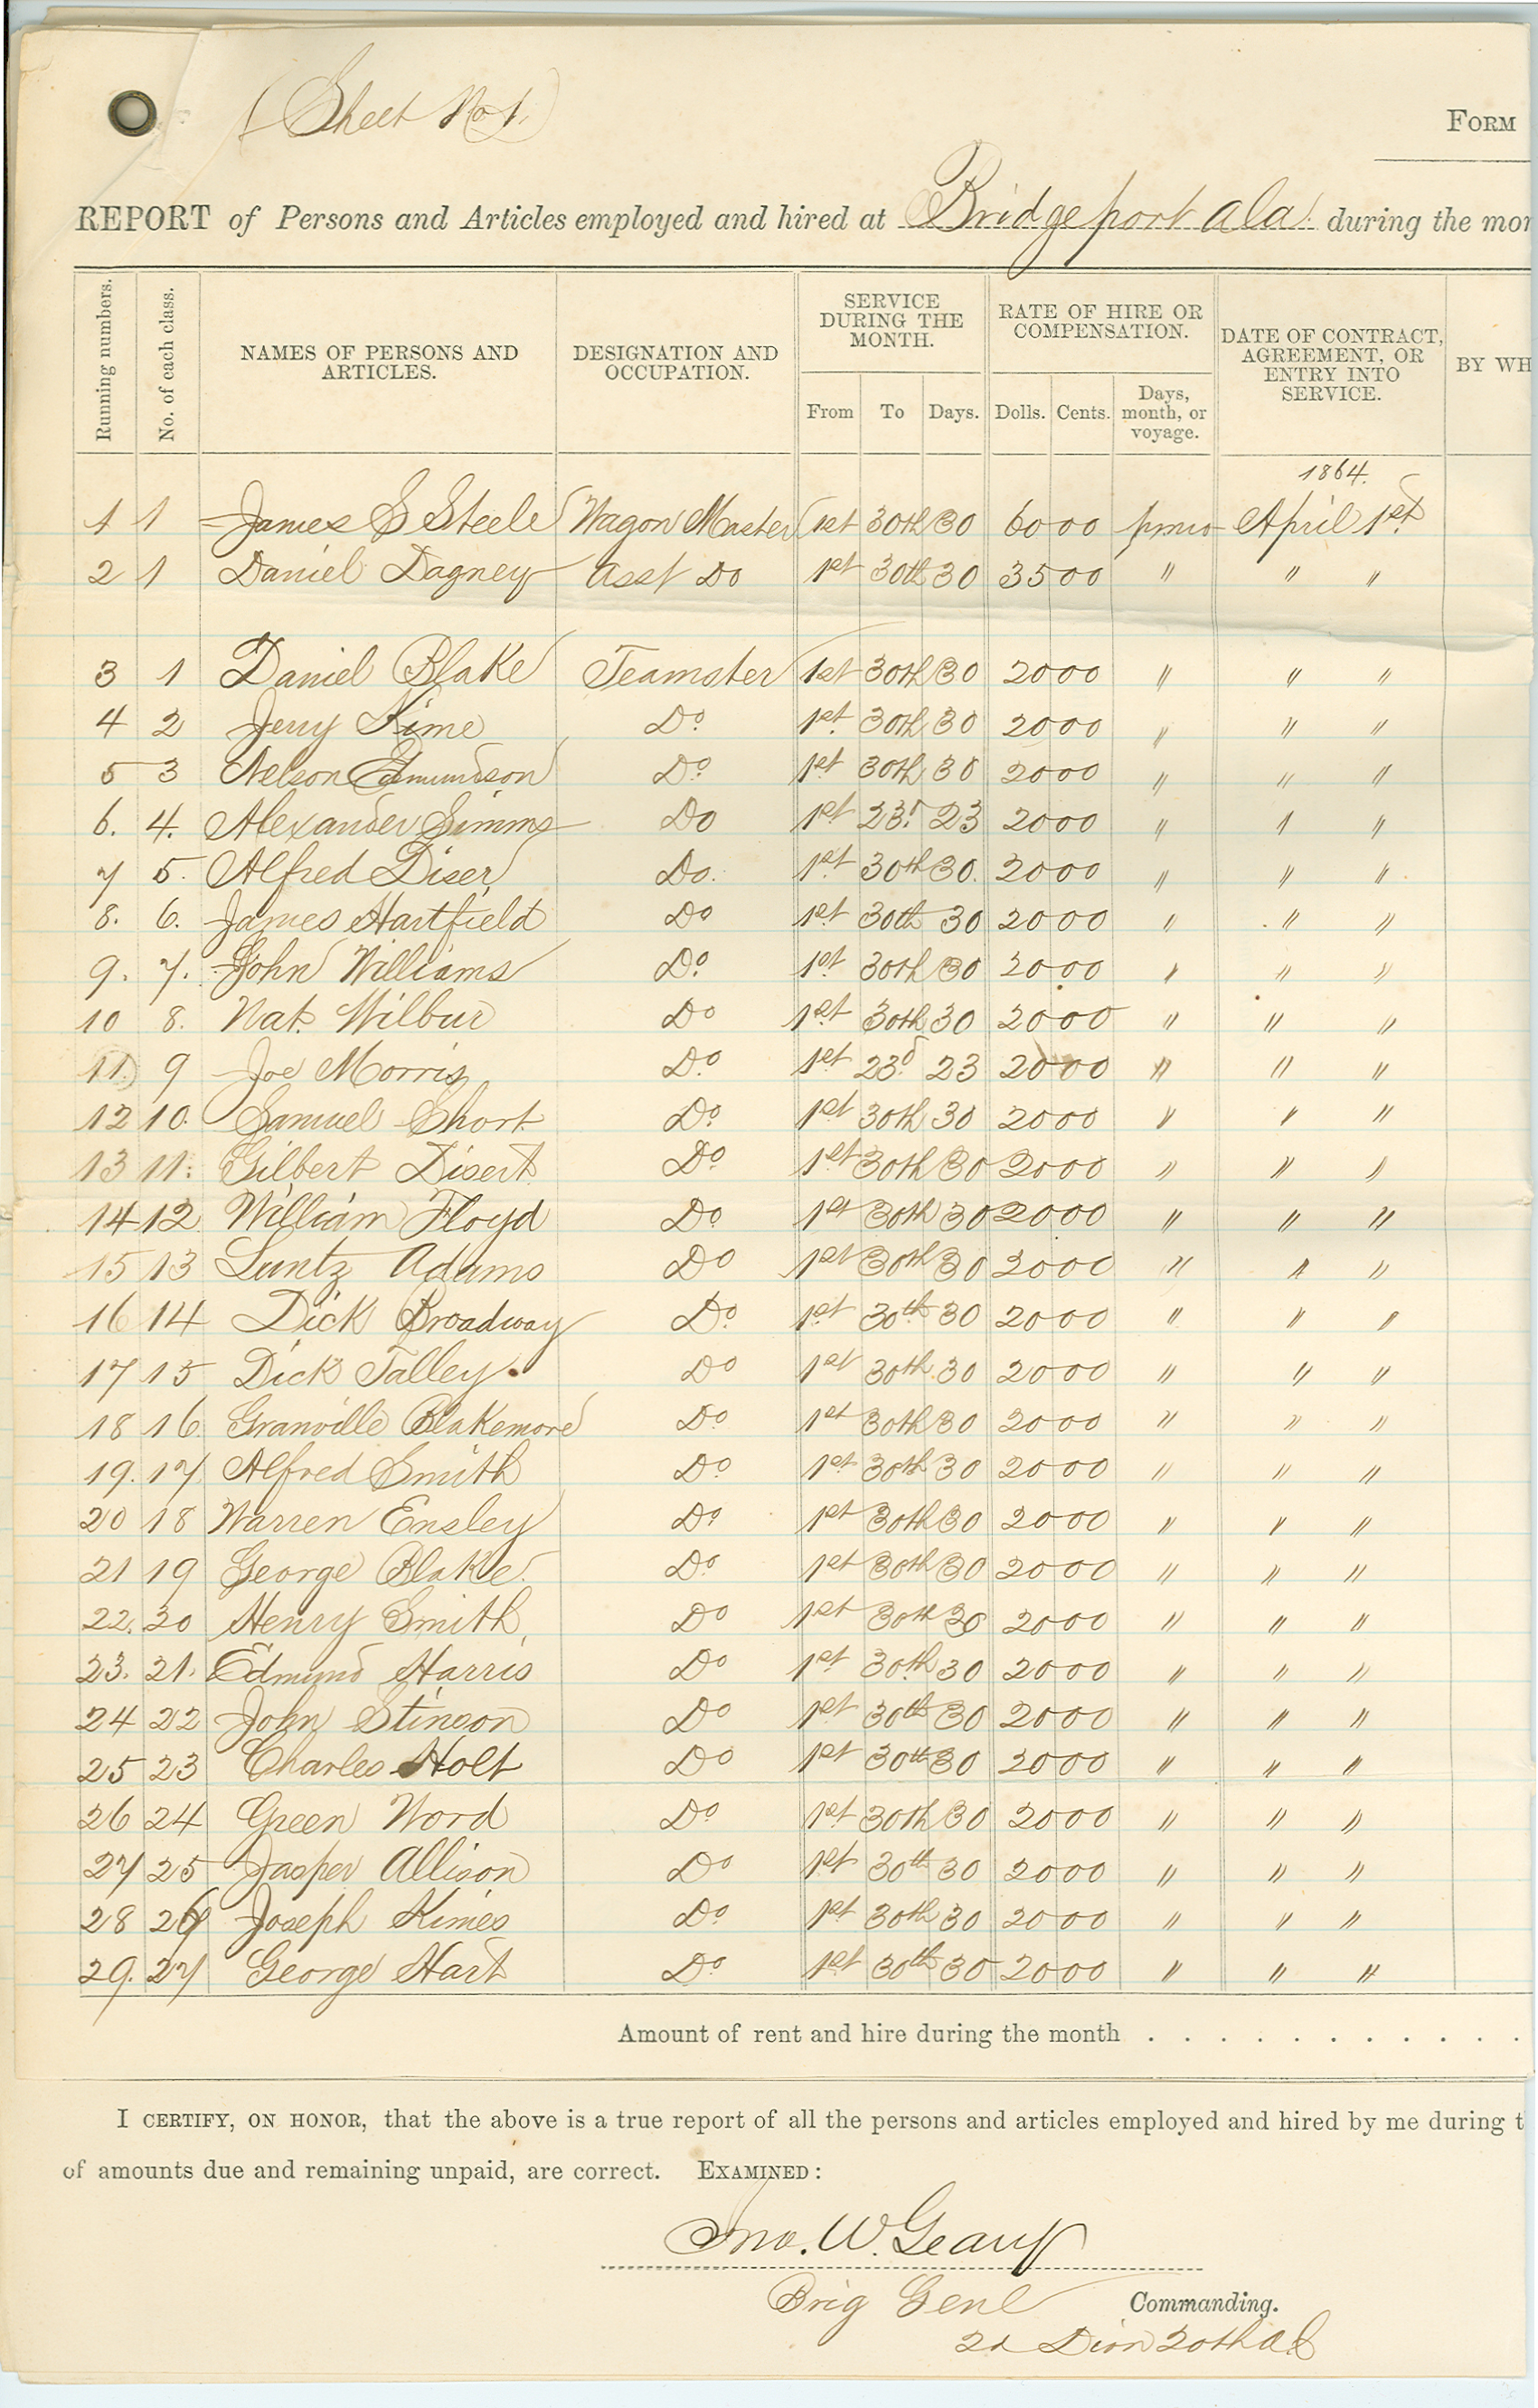 (Sheet No 1.)
FORM
REPORT of Persons and Articles employed and hired at Bridgeport Ala. during the mon
Running numbers. No. of each class. NAMES OF PERSONS AND ARTICLES. DESIGNATION AND OCCUPATION. SERVICE DURING THE MONTH. RATE OF HIRE OR COMPENSATION. DATE OF CONTRACT, AGREEMENT, OR ENTRY INTO SERVICE. BY WH
From To Days. Dolls. Cents. Days, month, or voyage.
1864.
1 1 James S Steele Wagon Master 1st 30th 30 60 00 pmo April 1st
2 1 Daniel Dagney Asst Do 1st 30th 30 35 00 " " "
3 1 Daniel Blake Teamster 1st 30th 30 20 00 " " "
4 2 Jerry Kime Do 1st 30th 30 20 00 " " "
5 3 Nelson Edmundson Do 1st 30th 30 20 00 " " "
6. 4. Alexander Simms Do 1st 23d 23 20 00 " " "
7 5. Alfred Diser Do. 1st 30th 30. 20 00 " " "
8. 6. James Hartfield Do 1st 30th 30 20 00 " " "
9. 7. John Williams Do 1st 30th 30 20 00 " " "
10 8. Nat. Wilbur Do 1st 30th 30 20 00 " " "
11. 9 Joe Morris Do 1st 23d 23 20 00 " " "
12 10. Samuel Short Do 1st 30th 30 20 00 " " "
13 11. Gilbert Disert Do 1st 30th 30 20 00 " " "
14 12 William Floyd Do 1st 30th 30 20 00 " " "
15 13 Luntz Adams Do 1st 30th 30 20 00 " " "
16 14 Dick Broadway Do 1st 30th 30 20 00 " " "
17 15 Dick Talley. Do 1st 30th 30 20 00 " " "
18 16 Granville Blakemore Do 1st 30th 30 20 00 " " "
19. 17 Alfred Smith Do 1st 30th 30 20 00 " " "
20 18 Warren Ensley Do 1st 30th 30 20 00 " " "
21 19 George Blake. Do 1st 30th 30 20 00 " " "
22. 20 Henry Smith Do 1st 30th 30 20 00 " " "
23. 21. Edmund Harris Do 1st 30th 30 20 00 " " "
24 22 John Stinson Do 1st 30th 30 20 00 " " "
25 23 Charles Holt Do 1st 30th 30 20 00 " " "
26 24 Green Word Do 1st 30th 30 20 00 " " "
27 25 Jasper Allison Do 1st 30th 30 20 00 " " "
28 26 Joseph Kimes Do 1st 30th 30 20 00 " " "
29. 27 George Hart Do 1st 30th 30 20 00 " " "
Amount of rent and hire during the month . . . . . . . . . . .
I CERTIFY, ON HONOR, that the above is a true report of all the persons and articles employed and hired by me during t
of amounts due and remaining unpaid, are correct. EXAMINED:
Jno. W. Geary
Brig Genl Commanding.
2d Divn 20th A.C